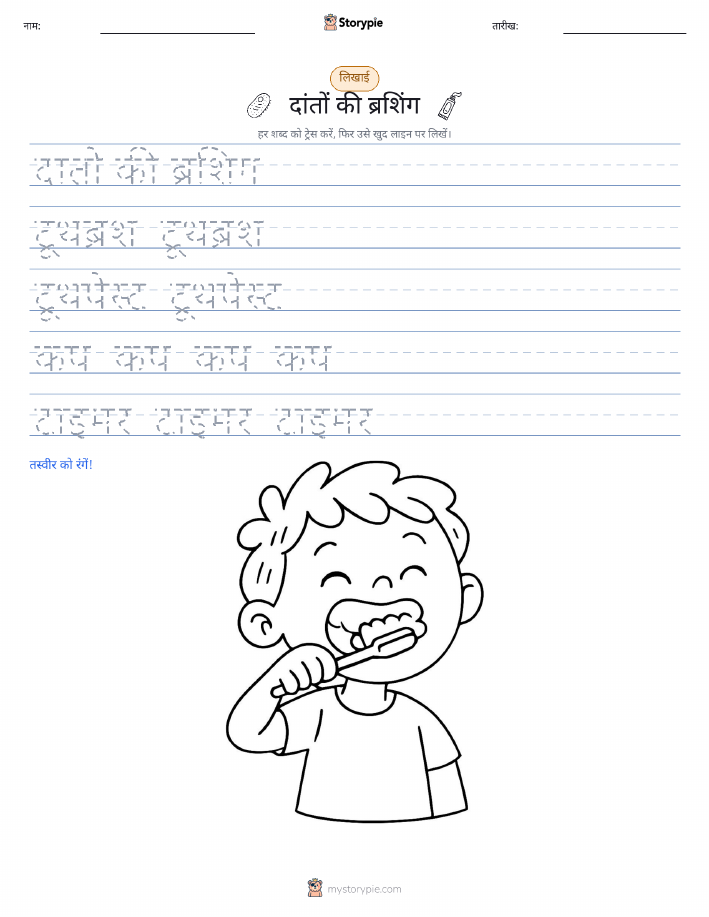 नाम:
Storypie
तारीख:
लिखाई
दांतों की ब्रशिंग
हर शब्द को ट्रेस करें, फिर उसे खुद लाइन पर लिखें।
दांतों की ब्रशिंग
टूथब्रश टूथब्रश
टूथपेस्ट टूथपेस्ट
कप कप कप कप
टाइमर टाइमर टाइमर
तस्वीर को रंगें!
mystorypie.com